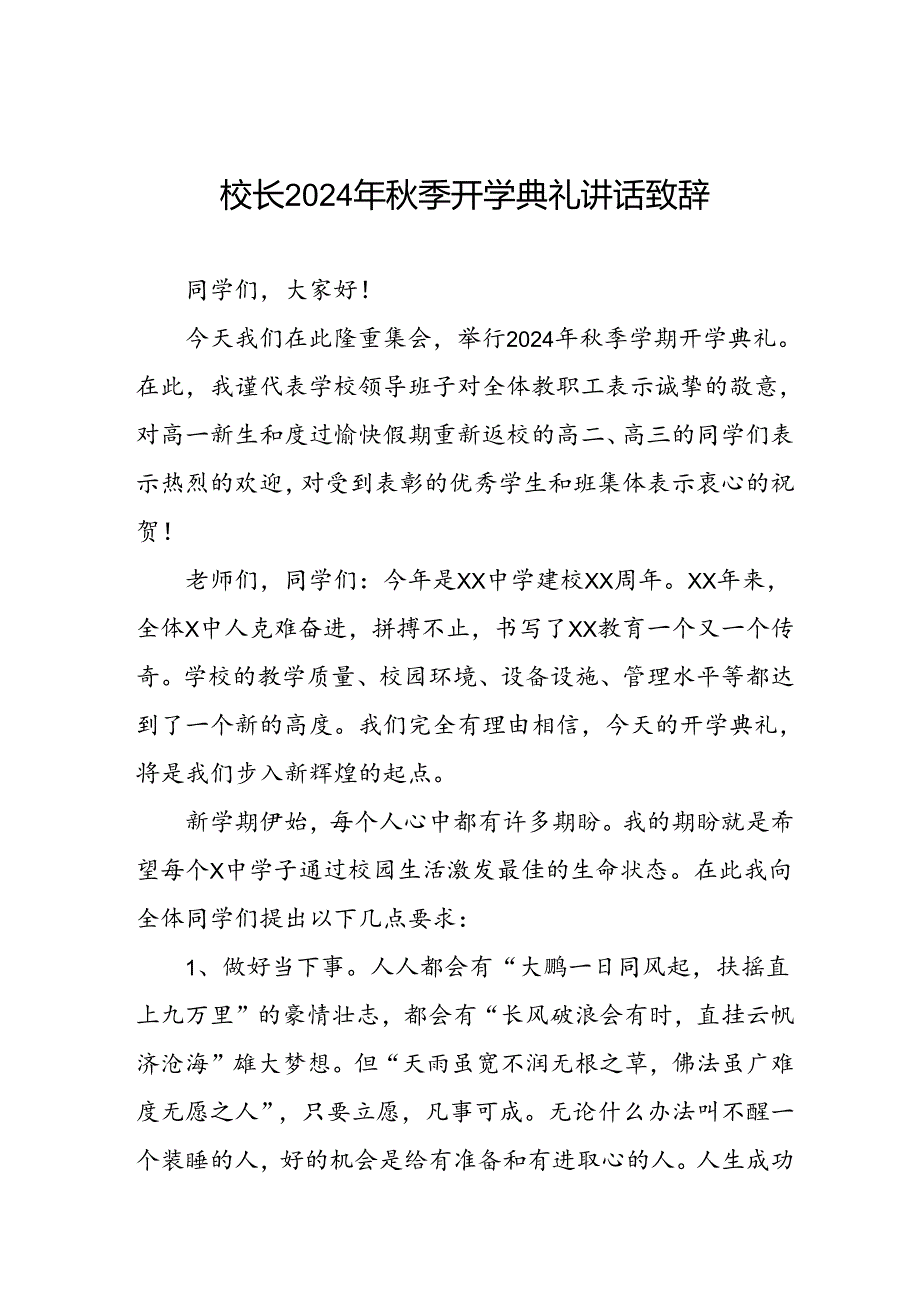 校长2024年秋季开学典礼讲话致辞
同学们，大家好！
今天我们在此隆重集会，举行2024年秋季学期开学典礼。
在此，我谨代表学校领导班子对全体教职工表示诚挚的敬意，
对高一新生和度过愉快假期重新返校的高二、高三的同学们表
示热烈的欢迎，对受到表彰的优秀学生和班集体表示衷心的祝
贺！
老师们，同学们：今年是XX中学建校XX周年。XX年来，
全体X中人克难奋进，拼搏不止，书写了XX教育一个又一个传
奇。学校的教学质量、校园环境、设备设施、管理水平等都达
到了一个新的高度。我们完全有理由相信，今天的开学典礼，
将是我们步入新辉煌的起点。
新学期伊始，每个人心中都有许多期盼。我的期盼就是希
望每个X中学子通过校园生活激发最佳的生命状态。在此我向
全体同学们提出以下几点要求：
1、做好当下事。人人都会有“大鹏一日同风起，扶摇直
上九万里”的豪情壮志，都会有“长风破浪会有时，直挂云帆
济沧海”雄大梦想。但“天雨虽宽不润无根之草，佛法虽广难
度无愿之人”，只要立愿，凡事可成。无论什么办法叫不醒一
个装睡的人，好的机会是给有准备和有进取心的人。人生成功